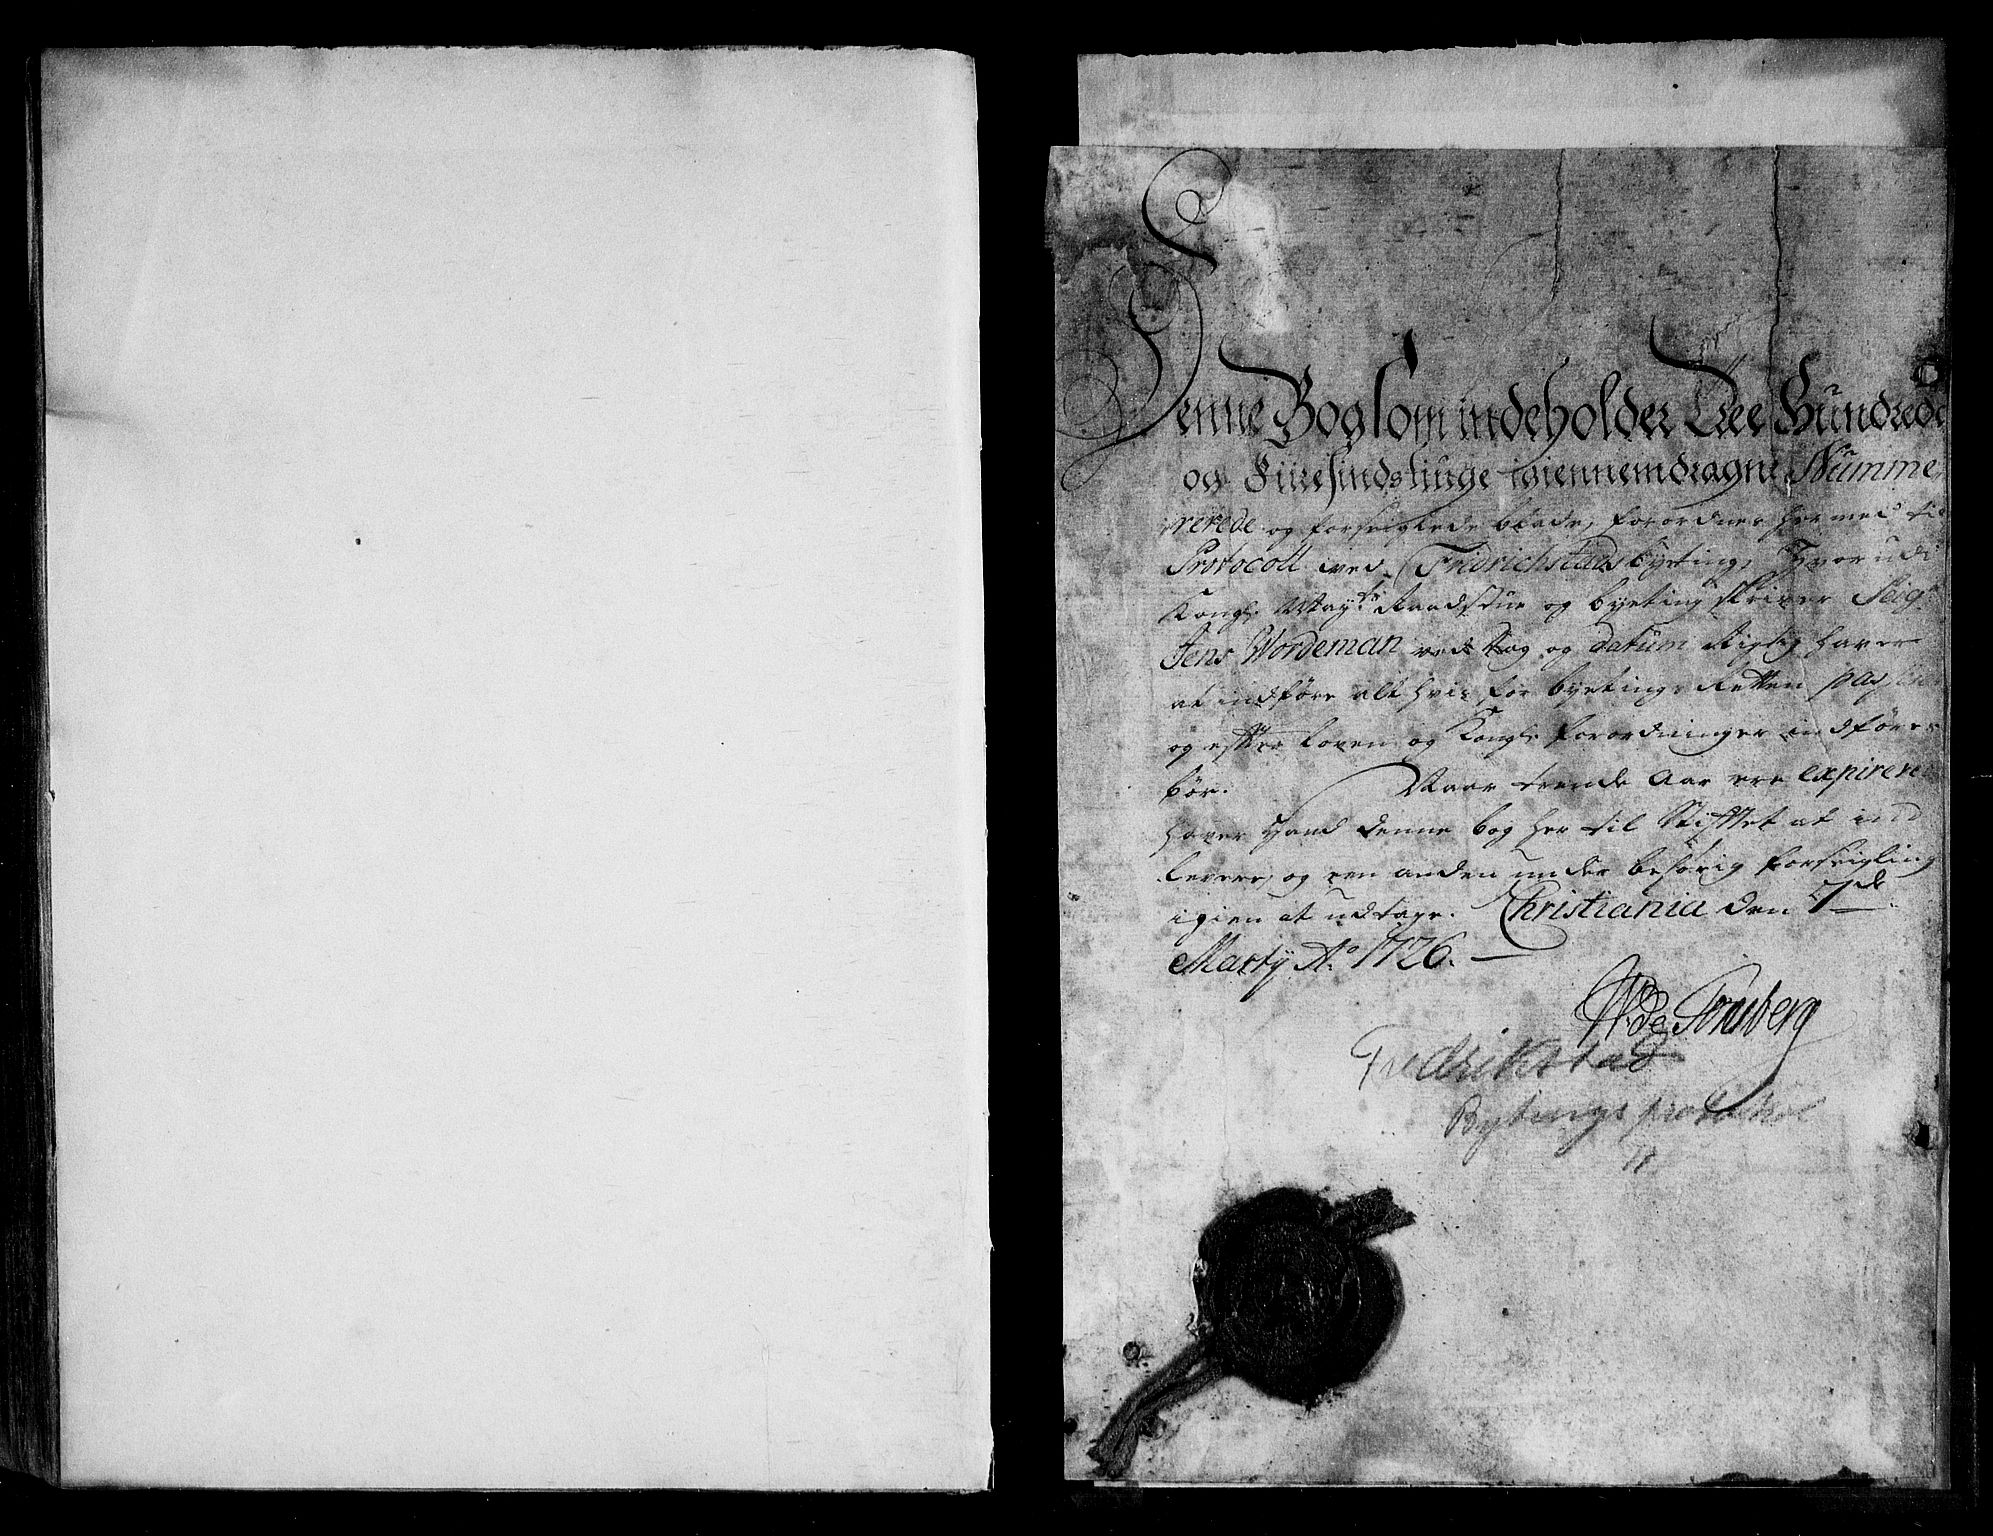 Denne Bog som indeholder Tree Hundrede
og Firesindstiuge igiennemdragne Numme
rerede og forseiglede blade, forordnes hermed til
Protocoll ved Fridrichstads byeting, Hvorudi
Kongl. May:ts Raadstue og byeting skriver Seig:r
Jens Wordeman ved dag og datum Rigtig haver
at indføre alt hvis for byetings Retten
og efter Loven og Kongl. forordninger indføres
bør. Naar trende Aar ere expirered
haver hand denne bog her til Stifttet at ind
levere, og een anden under behørig forseigling
igien at udtage. Christiania den 7de
Marty Ao 1726.
W. de Tonsberg
Fredrikstad
Bytingsprotokol